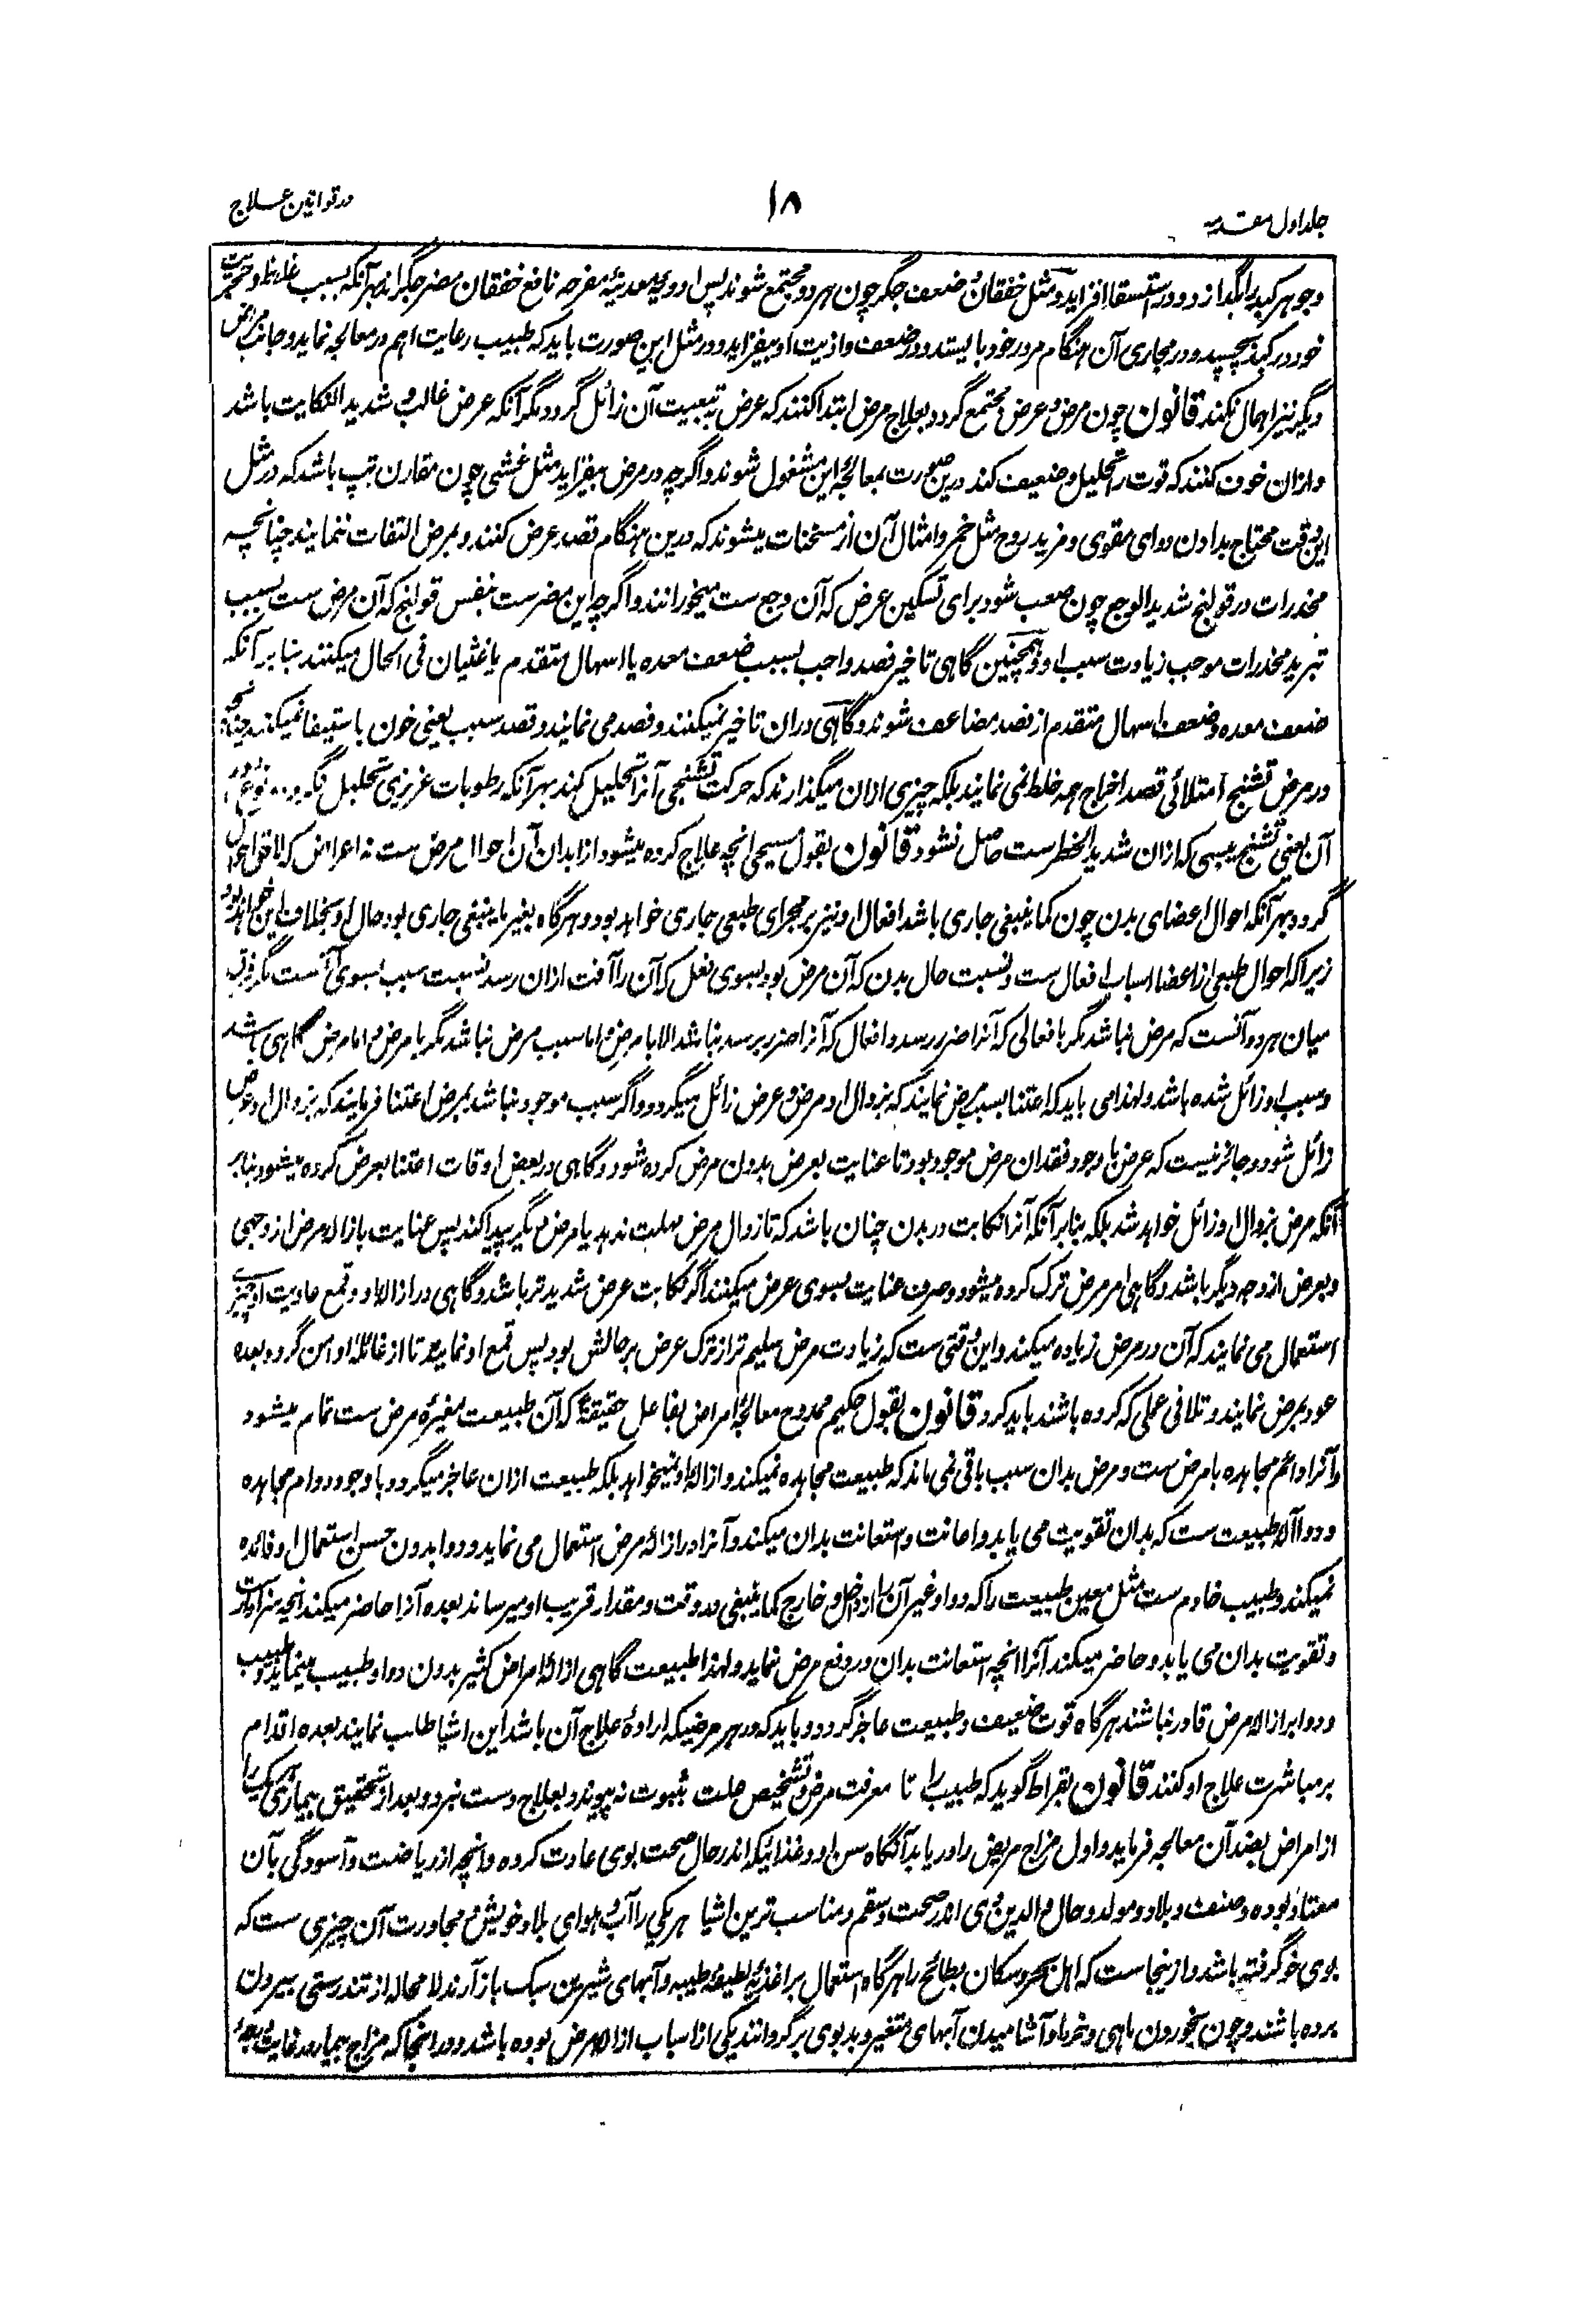 جلد اول مقدمه
١٨
در قوانین علاج
وجوهر کبد را بگدازد و در استسقا افزاید و مثل خفقان و ضعف جگر چون هر دو مجتمع شوند پس ادویه معدنیه مفرحه نافع خفقان مضر جگر اند بهر آنکه بسبب غلیظ و حجریت
خود در کبد بچسپد و در مجاری آن هنگام مرور خود بایستد و در ضعف و اذیت او بیفزاید و در مثل این صورت باید که طبیب رعایت اهم در معالجه نماید و جانب مرض
دیگر نیز اهمال نکند قانون چون مرض و عرض مجتمع گردد بعلاج مرض ابتدا کنند که عرض به تبعیت آن زائل گردد مگر آنکه عرض غالب و شدید النکایت باشد
و ازان خوف کنند که قوت را تحلیل و ضعیف کند درین صورت بمعالجۂ این مشغول شوند و اگرچه در مرض بیفزاید مثل غشی چون مقارن تپ باشد که در مثل
این وقت محتاج بدادن دوای مقوی و مزید روح مثل خمر و امثال آن از مسخنات میشوند که درین هنگام قصد عرض کنند و بمرض التفات ننمایند چنانچه
مخدرات در قولنج شدید الوجع چون صعب شود برای تسکین عرض که آن وجع ست میخورانند و اگرچه این مضرست بنفس قولنج که آن مرض ست بسبب
تبرید مخدرات موجب زیادت سبب او و همچنین گاهی تاخیر فصد واجب بسبب ضعف معده یا اسهال متقدم یا غثیان فی الحال میکنند بنابر آنکه
ضعف معده و ضعف اسهال متقدم از فصد مضاعف شوند و گاهی دران تاخیر نمیکنند و فصد می نمایند و قصد سبب یعنی خون باستیفا نمیکنند چنانچه
در مرض تشنج امتلائی قصد اخراج همه خلط نمی نمایند بلکه چیزی ازان میگذارند که حرکت تشنجی آنرا تحلیل کند بهر آنکه رطوبات غریزی تحلیل نگردد
آن یعنی تشنج یبسی که ازان شدید الخطر ست حاصل نشود قانون بقول مسیحی انچه علاج کرده میشود از ابدان آن احوال مرض ست نه اعراض که لاحق احوال
گردد بهر آنکه احوال اعضای بدن چون کما ینبغی جاری باشد افعال او نیز بر مجرای طبعی جاری خواهد بود و هرگاه بغیر ما ینبغی جاری بود حال او بخلاف این خواهد بود
زیرا که احوال طبعی از اعضا اسباب افعال ست و نسبت حال بدن که آن مرض بود بسوی فعل که آن را آفت ازان رسد نسبت سبب بسوی آنست مگر فرق
میان هر دو آنست که مرض نباشد مگر با فعالی که آنرا ضرر رسد و افعال که آنرا ضرر برسد نباشد الا با مرض و اما سبب مرض نباشد مگر با مرض و اما مرض گاهی باشد
و سبب او زائل شده باشد و لهذا می باید که اعتنا بسبب مرض نمایند که بزوال او مرض و عرض زائل میگردد و اگر سبب موجود نباشد بمرض اعتنا فرمایند که بزوال او عرض
زائل شود و جائز نیست که عرض با وجود فقدان مرض موجود بود تا عنایت بعرض بدون مرض کرده شود و گاهی در بعض اوقات اعتنا بعرض کرده میشود نه بنابر
آنکه مرض بزوال او زائل خواهد شد بلکه بنابر آنکه آنرا نکایت در بدن چنان باشد که تا زوال مرض مهلت ندهد یا مرض دیگر پیدا کند پس عنایت بازاله مرض از وجهی
و بعرض از وجه دیگر باشد و گاهی امر مرض ترک کرده میشود و صرف عنایت بسوی عرض میکنند اگر نکایت عرض شدیدتر باشد و گاهی در ازاله او و قمع عادیت او چیزی
استعمال می نمایند که آن در مرض زیاده میکند و این وقتی ست که زیادت مرض سلیم تر از ترک عرض بر حالش بود پس قمع او نمایند تا از غائله او امن گردد بعده
عود بمرض نمایند و تلافی عملی که کرده باشند باید کرد قانون بقول حکیم ممدوح معالجۂ امراض بفاعل حقیقة که آن طبیعت مغیرۂ مرض ست تمام میشود
و آنرا دائم مجاهده با مرض ست و مرض بدان سبب باقی نمی ماند که طبیعت مجاهده نمیکند و ازالۂ او نمیخواهد بلکه طبیعت ازان عاجز میگردد با وجود دوام مجاهده
و دوا آلۂ طبیعت ست که بدان تقویت می یابد و اعانت و استعانت بدان میکند و آنرا در ازالۂ مرض استعمال می نماید و دوا بدون حسن استعمال او فائده
نمیکند و طبیب خادم ست مثل معین طبیعت را که دوا و غیر آن را از داخل و خارج کما ینبغی در وقت و مقدار قریب او میرساند بعده آنرا حاضر میکند انچه سزاوار آنست
و تقویت بدان می یابد و حاضر میکند آنرا انچه استعانت بدان در دفع مرض نماید و لهذا طبیعت گاهی ازالۂ امراض کثیر بدون دوا و طبیب مینماید و طبیب
و دوا بر ازاله مرض قادر نباشند هرگاه قوت ضعیف و طبیعت عاجز گردد و باید که در هر مرضیکه ارادۂ علاج آن باشد این اشیا طلب نمایند بعده اقدام
بر مباشرت علاج او کنند قانون بقراط گوید که طبیب را تا معرفت مرض و تشخیص علت بثبوت نه پیوندد بعلاج دست نبرد و بعد از تحقیق بیماری هر یک را
از امراض بضد آن معالجه فرماید و اول مزاج مریض را دریابد آنگاه سن او و غذائیکه اندر حال صحت بوی عادت کرده و انچه از ریاضت و آسودگی بآن
معتاد بوده و صنعت و بلاد و مولد و حال والدین وی اندر صحت و سقم و مناسب ترین اشیا هر یکی را آب و هوای بلاد خویش و مجاورت آن چیزی ست که
بوی خو گرفته باشد و ازینجا ست که اهل بحر و سکان بطائح را هرگاه استعمال بر اغذیۂ لطیفۂ طیبه و آبهای شیرین سبک باز آرند لا محاله از تندرستی بیرون
برده باشند و چون بخوردن ماهی و خرما و آشامیدن آبهای متغیر و بدبوی برگردانند یکی از اسباب ازاله مرض بوده باشد و در انجا که مزاج بیمار در غایت